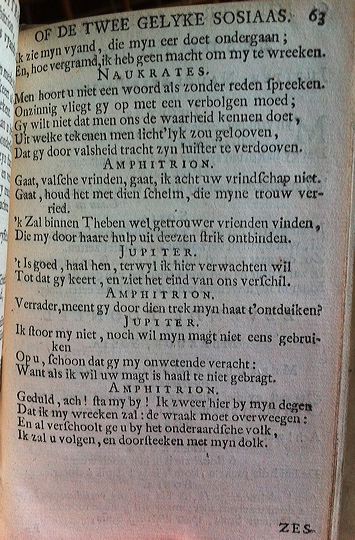 OF DE TWEE GELYKE SOSIAAS. 63
Ik zie myn vyand, die myn eer doet ondergaan;
En, hoe vergramd, ik heb geen macht om my te wreeken.
NAUKRATES.
Men hoort u niet een woord als zonder reden spreeken.
Onzinnig vliegt gy op met een verbolgen moed;
Gy wilt niet dat men ons de waarheid kennen doet,
Uit welke tekenen men licht'lyk zou gelooven,
Dat gy door valsheid tracht zyn luister te verdooven.
AMPHITRION.
Gaat, valsche vrinden, gaat, ik acht uw vrindschap niet.
Gaat, houd het met dien schelm, die myne trouw ver-
ried.
'k Zal binnen Theben wel getrouwer vrienden vinden,
Die my door haare hulp uit deezen strik ontbinden.
JUPITER.
't Is goed, haal hen, terwyl ik hier verwachten wil
Tot dat gy keert, en ziet het eind van ons verschil.
AMPHITRION.
Verrader, meent gy door dien trek myn haat t'ontduiken?
JUPITER.
Ik stoor my niet, noch wil myn magt niet eens gebrui-
ken
Op u, schoon dat gy my onwetende veracht:
Want als ik wil uw magt is haast te niet gebragt.
AMPHITRION.
Geduld, ach! sta my by! Ik zweer hier by myn degen
Dat ik my wreeken zal: de wraak moet overweegen:
En al verschoolt ge u by het onderaardsche volk,
Ik zal u volgen, en doorsteeken met myn dolk.
ZES-